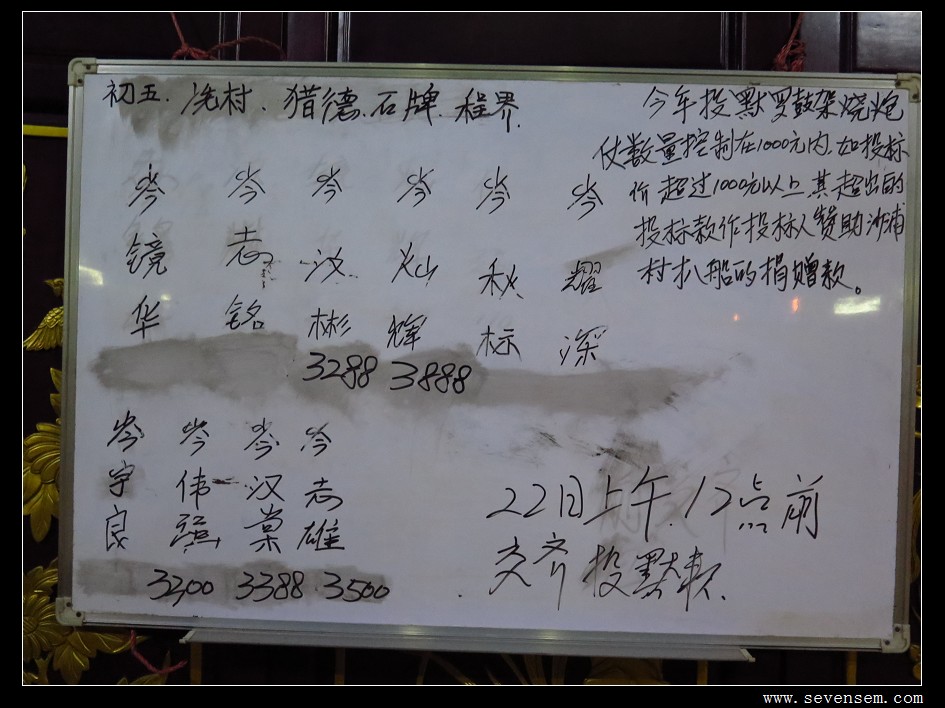 初五.冼村.猎德.石牌.程界.
今年投默罗鼓架烧炮
仗数量控制在1000元内.如投标
价超过1000元以上其超出的
投标款作投标人赞助沙浦
村扒船的捐赠款。
岑镜华
岑志铭
岑汝彬
岑灿辉
岑秋标
岑耀深
3288 3888
岑宇良
岑伟强
岑汉棠
岑志雄
3200 3388 3500
22日上午.12点前
交齐投默款.
www.sevensem.com